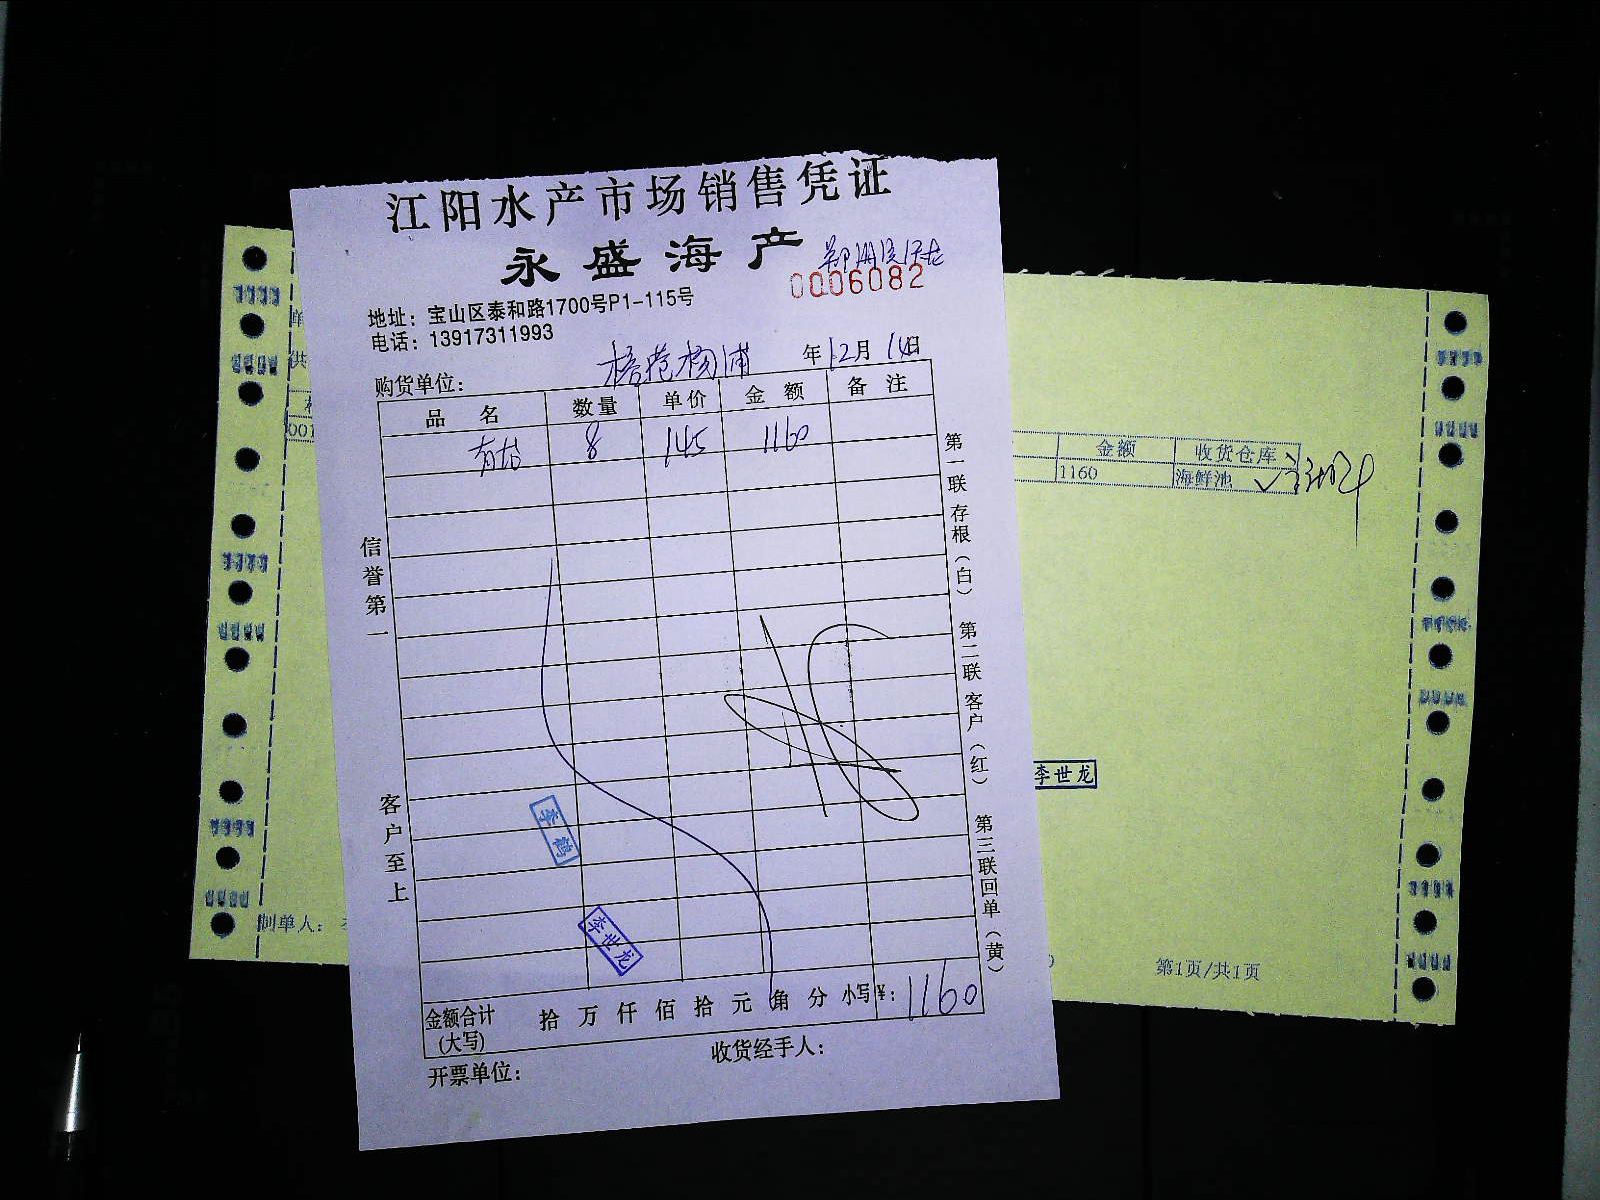 江阳水产市场销售凭证
永盛海产
0006082
地址：宝山区泰和路1700号P1-115号
电话：13917311993
购货单位： 杨浦 年12月14日
品名 数量 单价 金额 备注
8 145 1160
信誉第一
客户至上
第一联存根（白） 第二联客户（红） 第三联回单（黄）
李鹤
李世龙
金额合计(大写) 拾 万 仟 佰 拾 元 角 分 小写¥：1160
收货经手人：
开票单位：
单
供
001
金额 收货仓库
1160 海鲜池
李世龙
制单人：
第1页/共1页